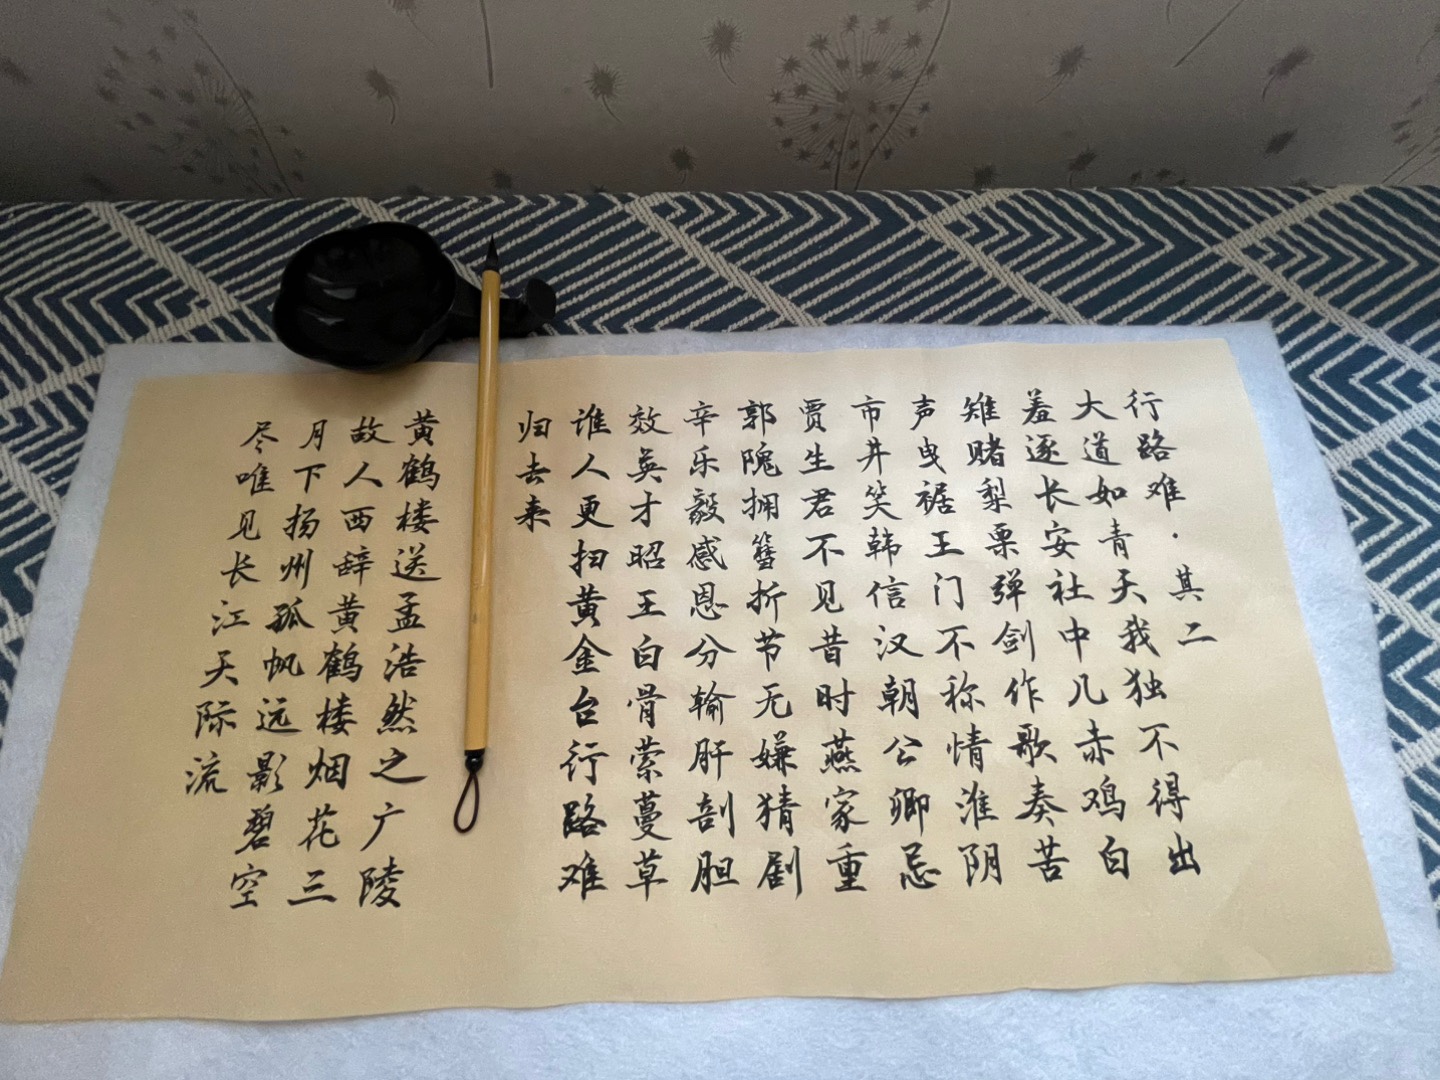 行路难·其二
大道如青天我独不得出
羞逐长安社中儿赤鸡白
雉赌梨栗弹剑作歌奏苦
声曳裾王门不称情淮阴
市井笑韩信汉朝公卿忌
贾生君不见昔时燕家重
郭隗拥篲折节无嫌猜剧
辛乐毅感恩分输肝剖胆
效英才昭王白骨萦蔓草
谁人更扫黄金台行路难
归去来
黄鹤楼送孟浩然之广陵
故人西辞黄鹤楼烟花三
月下扬州孤帆远影碧空
尽唯见长江天际流